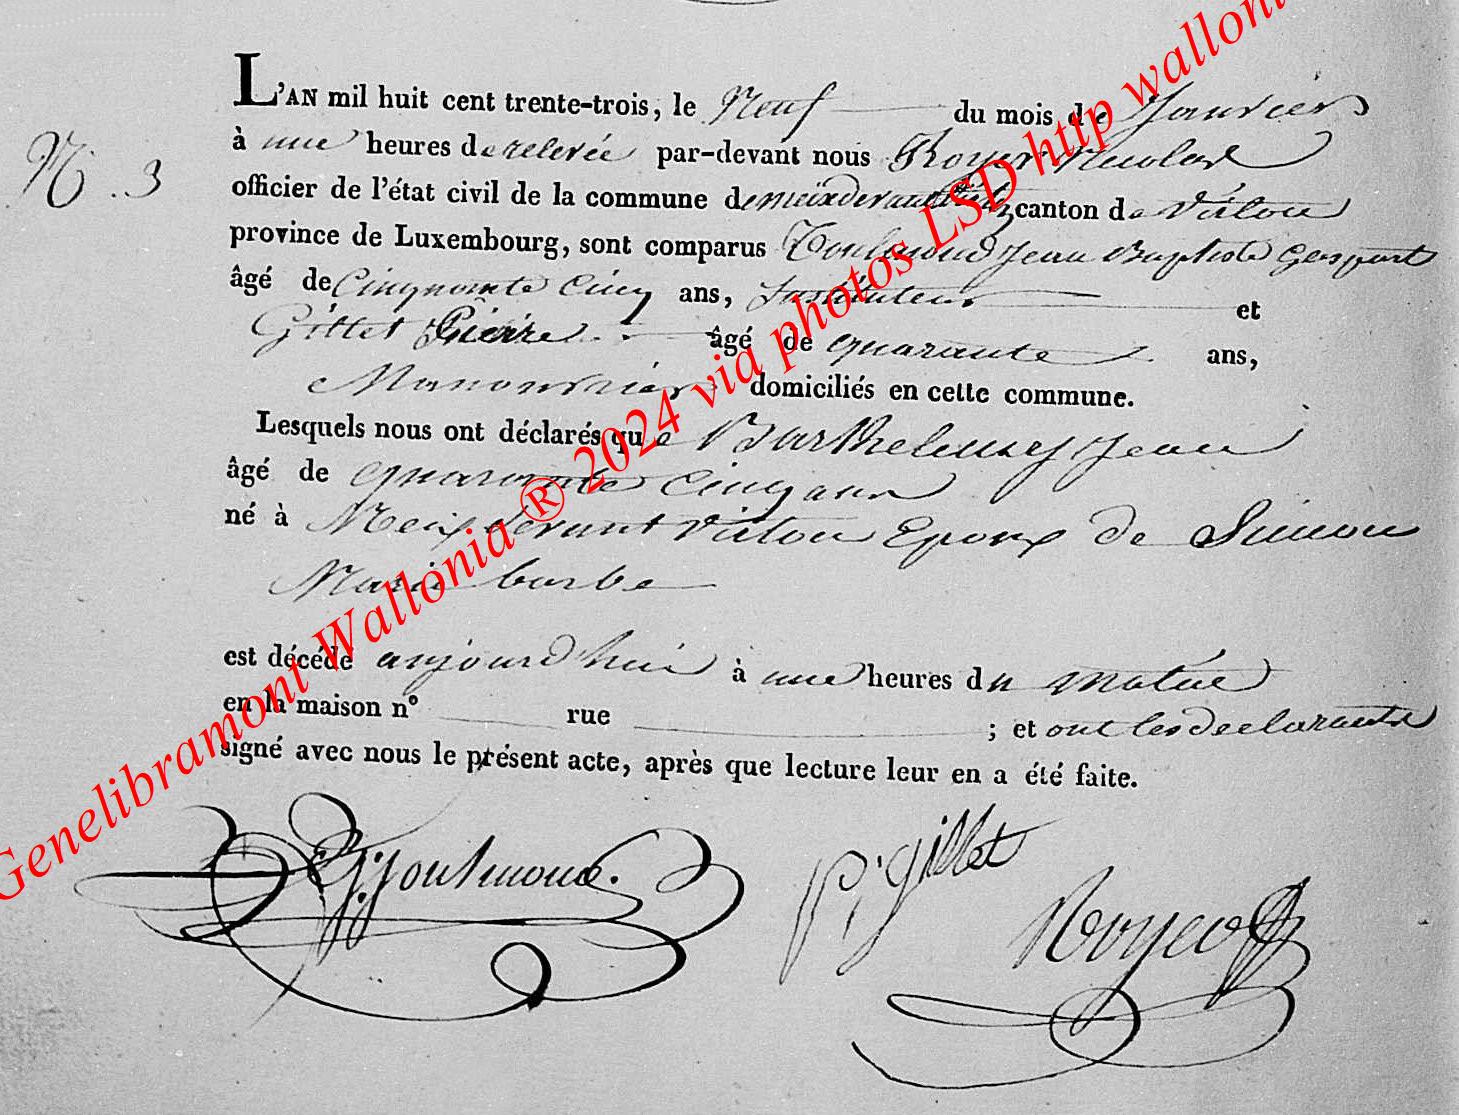 L'AN mil huit cent trente-trois, le Neuf du mois de Janvier
N. 3
à une heures de relevée par-devant nous Royer Nicolas
officier de l'état civil de la commune de meix devant virton canton de Virton
province de Luxembourg, sont comparus Toulmond Jean Baptiste Gaspart
âgé de Cinquante Cinq ans, Instituteur et
Gillet Pierre âgé de quarante ans,
Manouvrier domiciliés en cette commune.
Lesquels nous ont déclarés que Barthelemy Jean
âgé de quarante Cinq ans
né à Meix devant virton Epoux de Simon
Marie barbe
est décédé aujourd'hui à une heures du matin
en la maison n° rue ; et ont les declarants
signé avec nous le présent acte, après que lecture leur en a été faite.
Toulmond.
P. Gillet
Genelibramont Wallonia ® 2024 via photos LSD http walloni